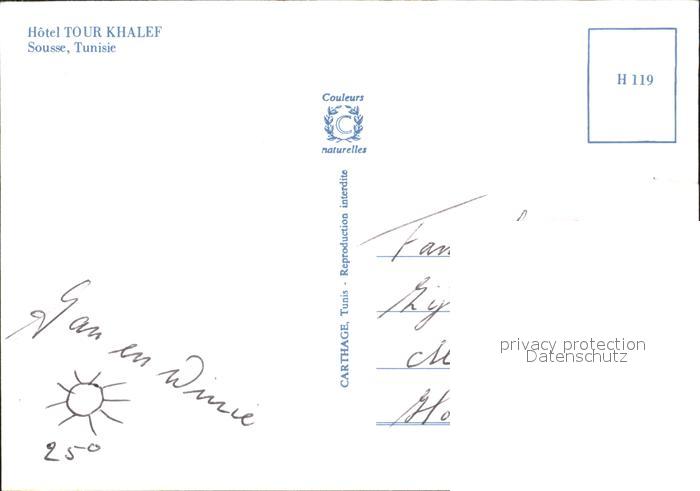 Hôtel TOUR KHALEF
Sousse, Tunisie
H 119
Couleurs
C
naturelles
CARTHAGE, Tunis - Reproduction interdite
Jan en Winie
25°
Fam
Zij
Ho
privacy protection
Datenschutz